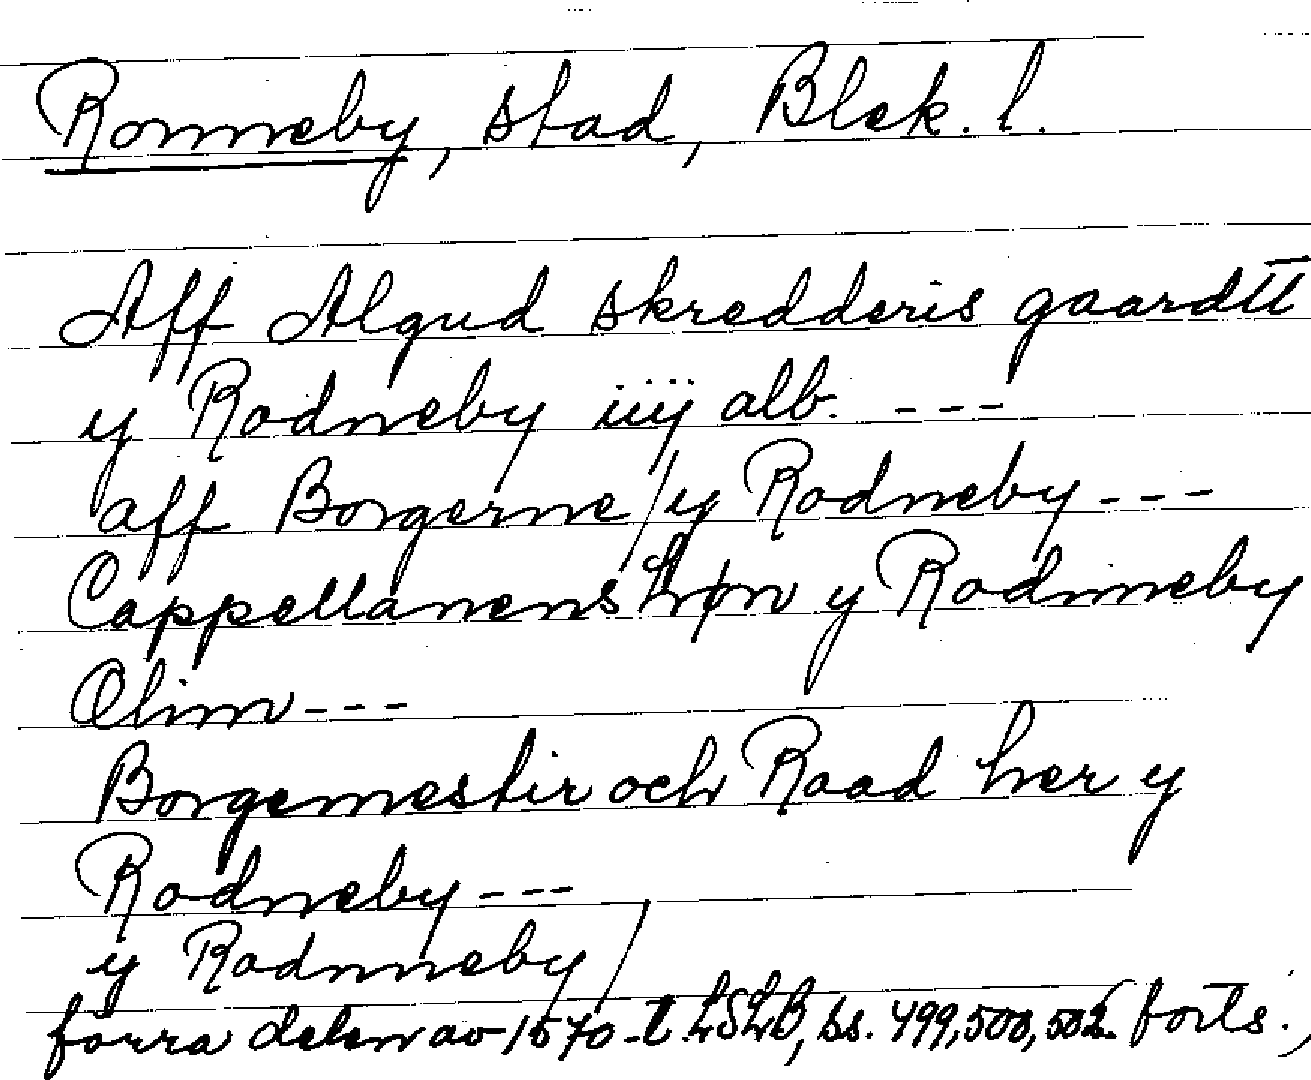 Ronneby, stad, Blek. l.
Aff Algud skredderis gaardtt
y Rodneby iiij alb. ---
aff Borgerne / y Rodneby ---
Cappellanens y Rodnneby
Olim ---
Borgemestir och Raad her y
Rodneby ---
y Rodnneby /
förra delen av 1570-t. LSLB, ss. 499, 500, 502. forts.,